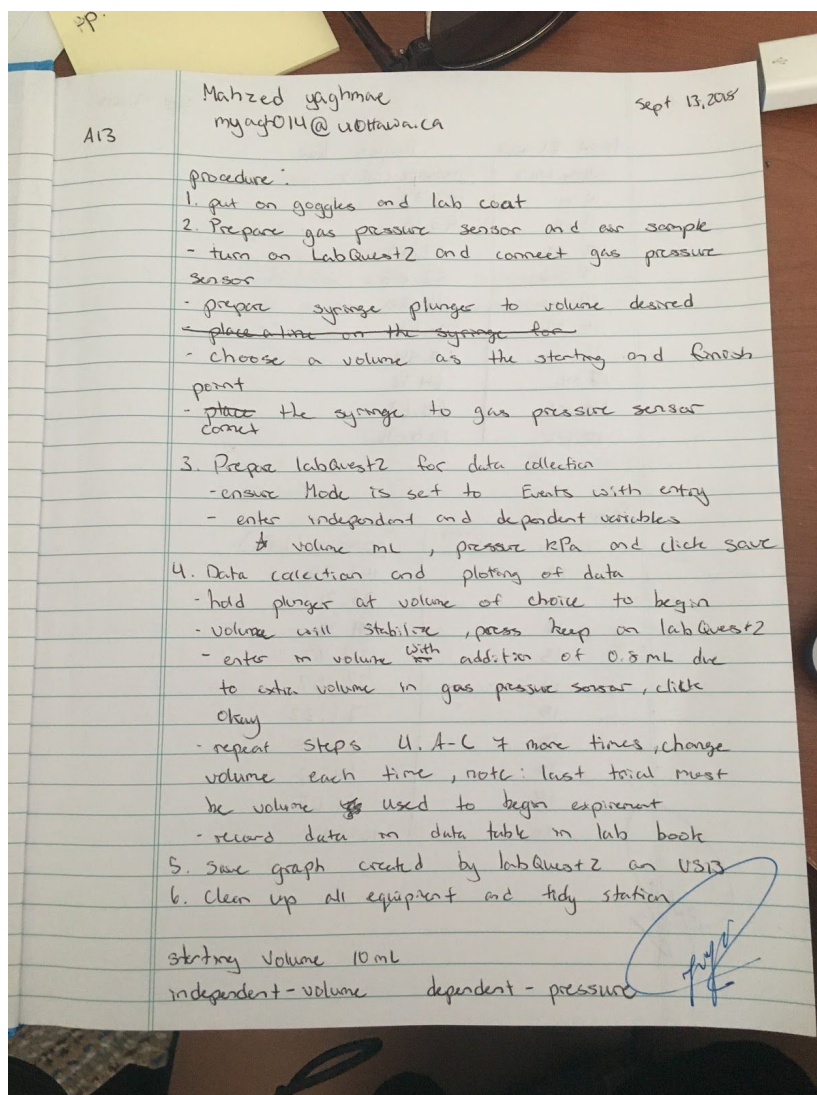 ep.
Mahzed yaghmae
Sept 13, 2018
myagh014@uottawa.ca
A13
procedure:
1. put on goggles and lab coat
2. Prepare gas pressure sensor and air sample
- turn on LabQuest2 and connect gas pressure
sensor
- prepare syringe plunger to volume desired
- place a line on the syringe for
- choose a volume as the starting and finish
point
- place the syringe to gas pressure sensor
connect
3. Prepare labQuest2 for data collection
- ensure Mode is set to Events with entry
- enter independent and dependent variables
volume mL, pressure kPa and click save
4. Data collection and ploting of data
- hold plunger at volume of choice to begin
- volume will stabilize, press keep on labQuest2
- enter in volume with addition of 0.8 mL due
to extra volume in gas pressure sensor, click
Okay
- repeat steps 4. A-C 7 more times, change
volume each time, note: last trial must
be volume used to begin expirement
- record data in data table in lab book
5. Save graph created by labQuest2 on USB
6. Clean up all equipment and tidy station
starting volume 10 mL
independent - volume dependent - pressure